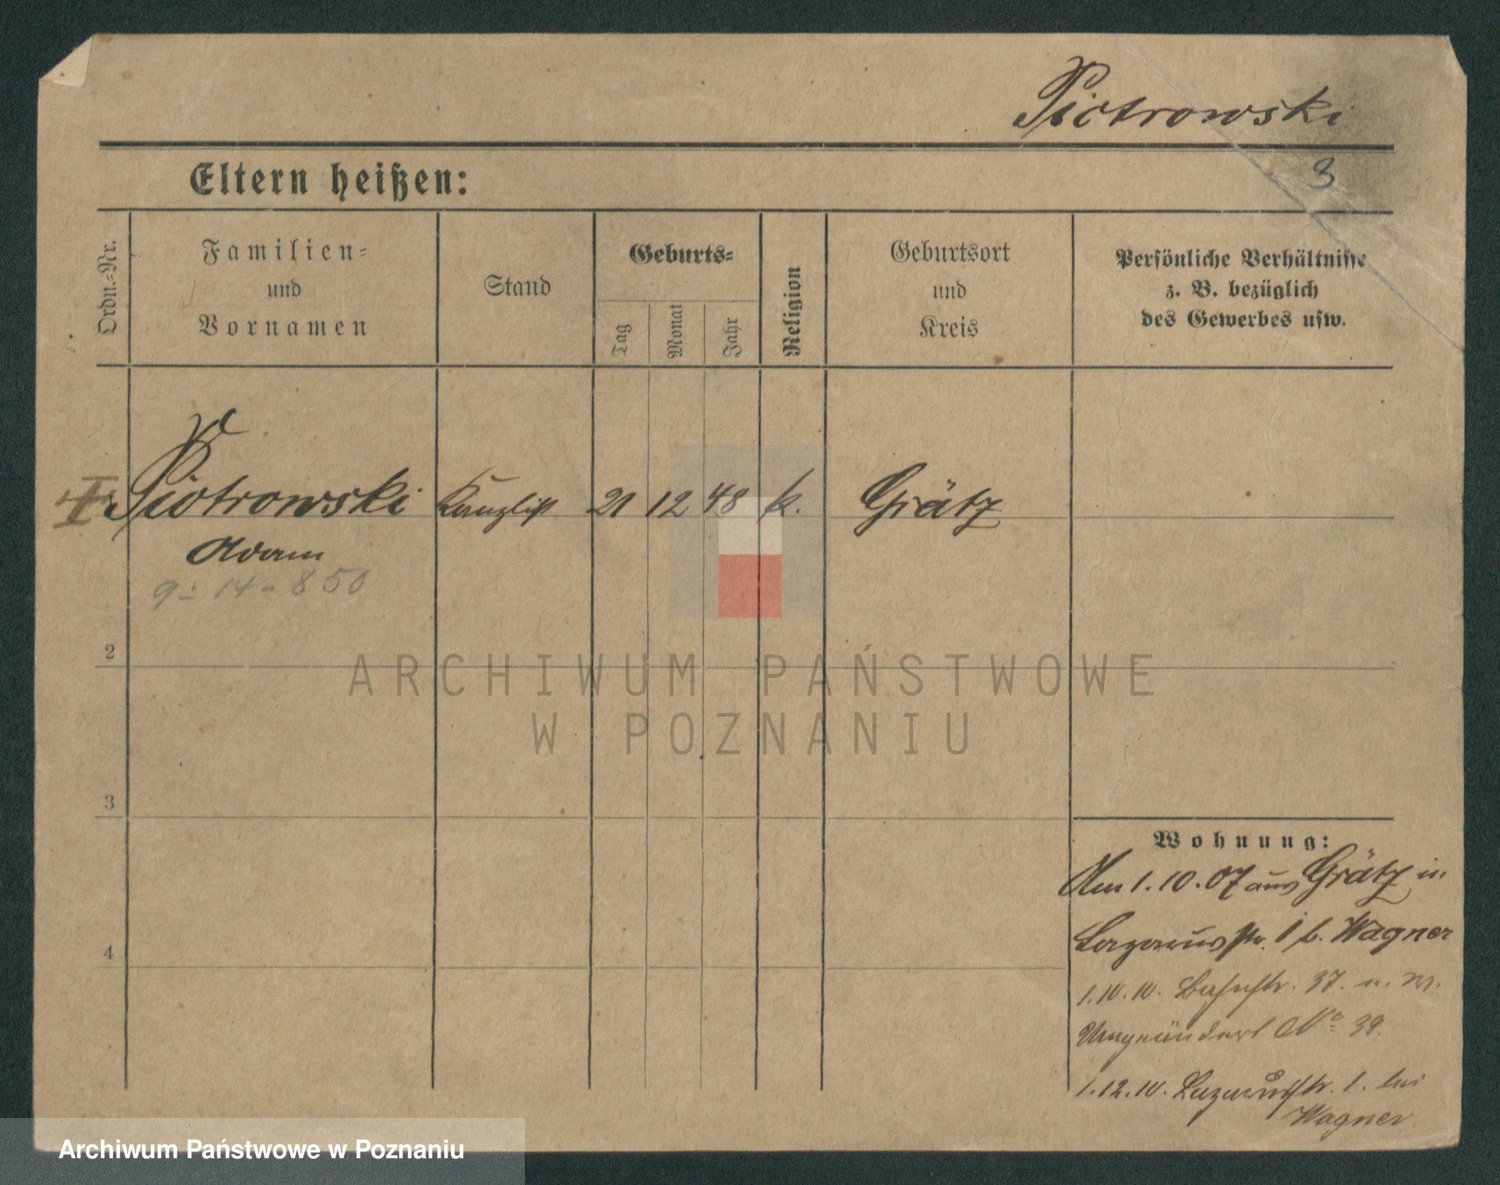 Piotrowski
3
Eltern heißen:
Ordn.-Nr.
Familien-
und
Vornamen
Stand
Geburts-
Tag
Monat
Jahr
Religion
Geburtsort
und
Kreis
Persönliche Verhältnisse
z. B. bezüglich
des Gewerbes usw.
Piotrowski Kanzlist 21 12 48 k. Grätz
Adam
9 - 14 - 850
2
3
4
Wohnung:
Am 1.10.07 aus Grätz in
Lazarusstr. 1 b. Wagner
1.10.10. Bahnstr. 37. u. M.
Umgeändert No 39.
1.12.10. Lazarusstr. 1. bei
Wagner
ARCHIWUM PAŃSTWOWE
W POZNANIU
Archiwum Państwowe w Poznaniu